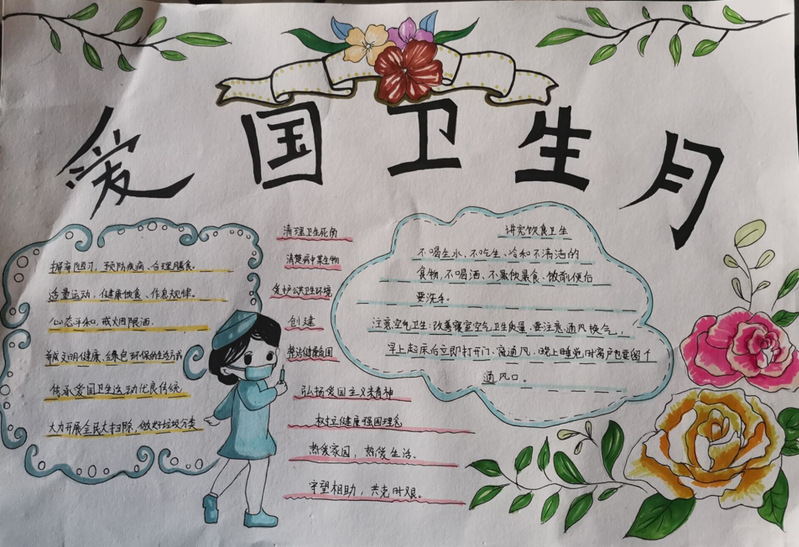 爱国卫生月
提高防习，预防疾病、合理膳食。
适量运动，健康饮食、作息规律。
心态平和，戒烟限酒。
文明健康、绿色环保的生活方式
传承爱国卫生运动优良传统
大力开展全民大扫除，做好垃圾分类
清理卫生死角
清楚病中某生物
爱护公共卫生环境
创建
健康国
弘扬爱国主义精神
树立健康强国理念
热爱家园，热爱生活。
守望相助，共克时艰。
讲究饮食卫生
不喝生水、不吃生、冷和不清洁的
食物，不喝酒、不暴饮暴食、饭前便后
要洗手。
注意空气卫生：改善寝室空气卫生质量，要注意通风换气，
早上起床后立即打开门、窗通风，晚上睡觉时窗户也要留个
通风口。